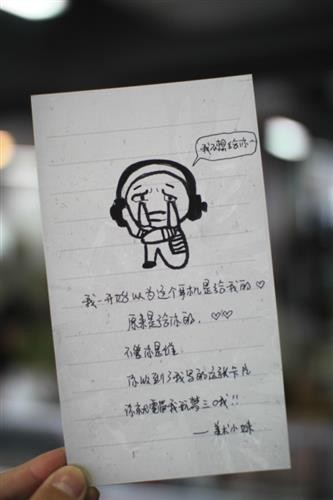 我不想给你~
我一开始以为这个耳机是给我的♡
原来是给你的，♡♡
不管你是谁
你收到了我写的这张卡片
你就
——美术小妹